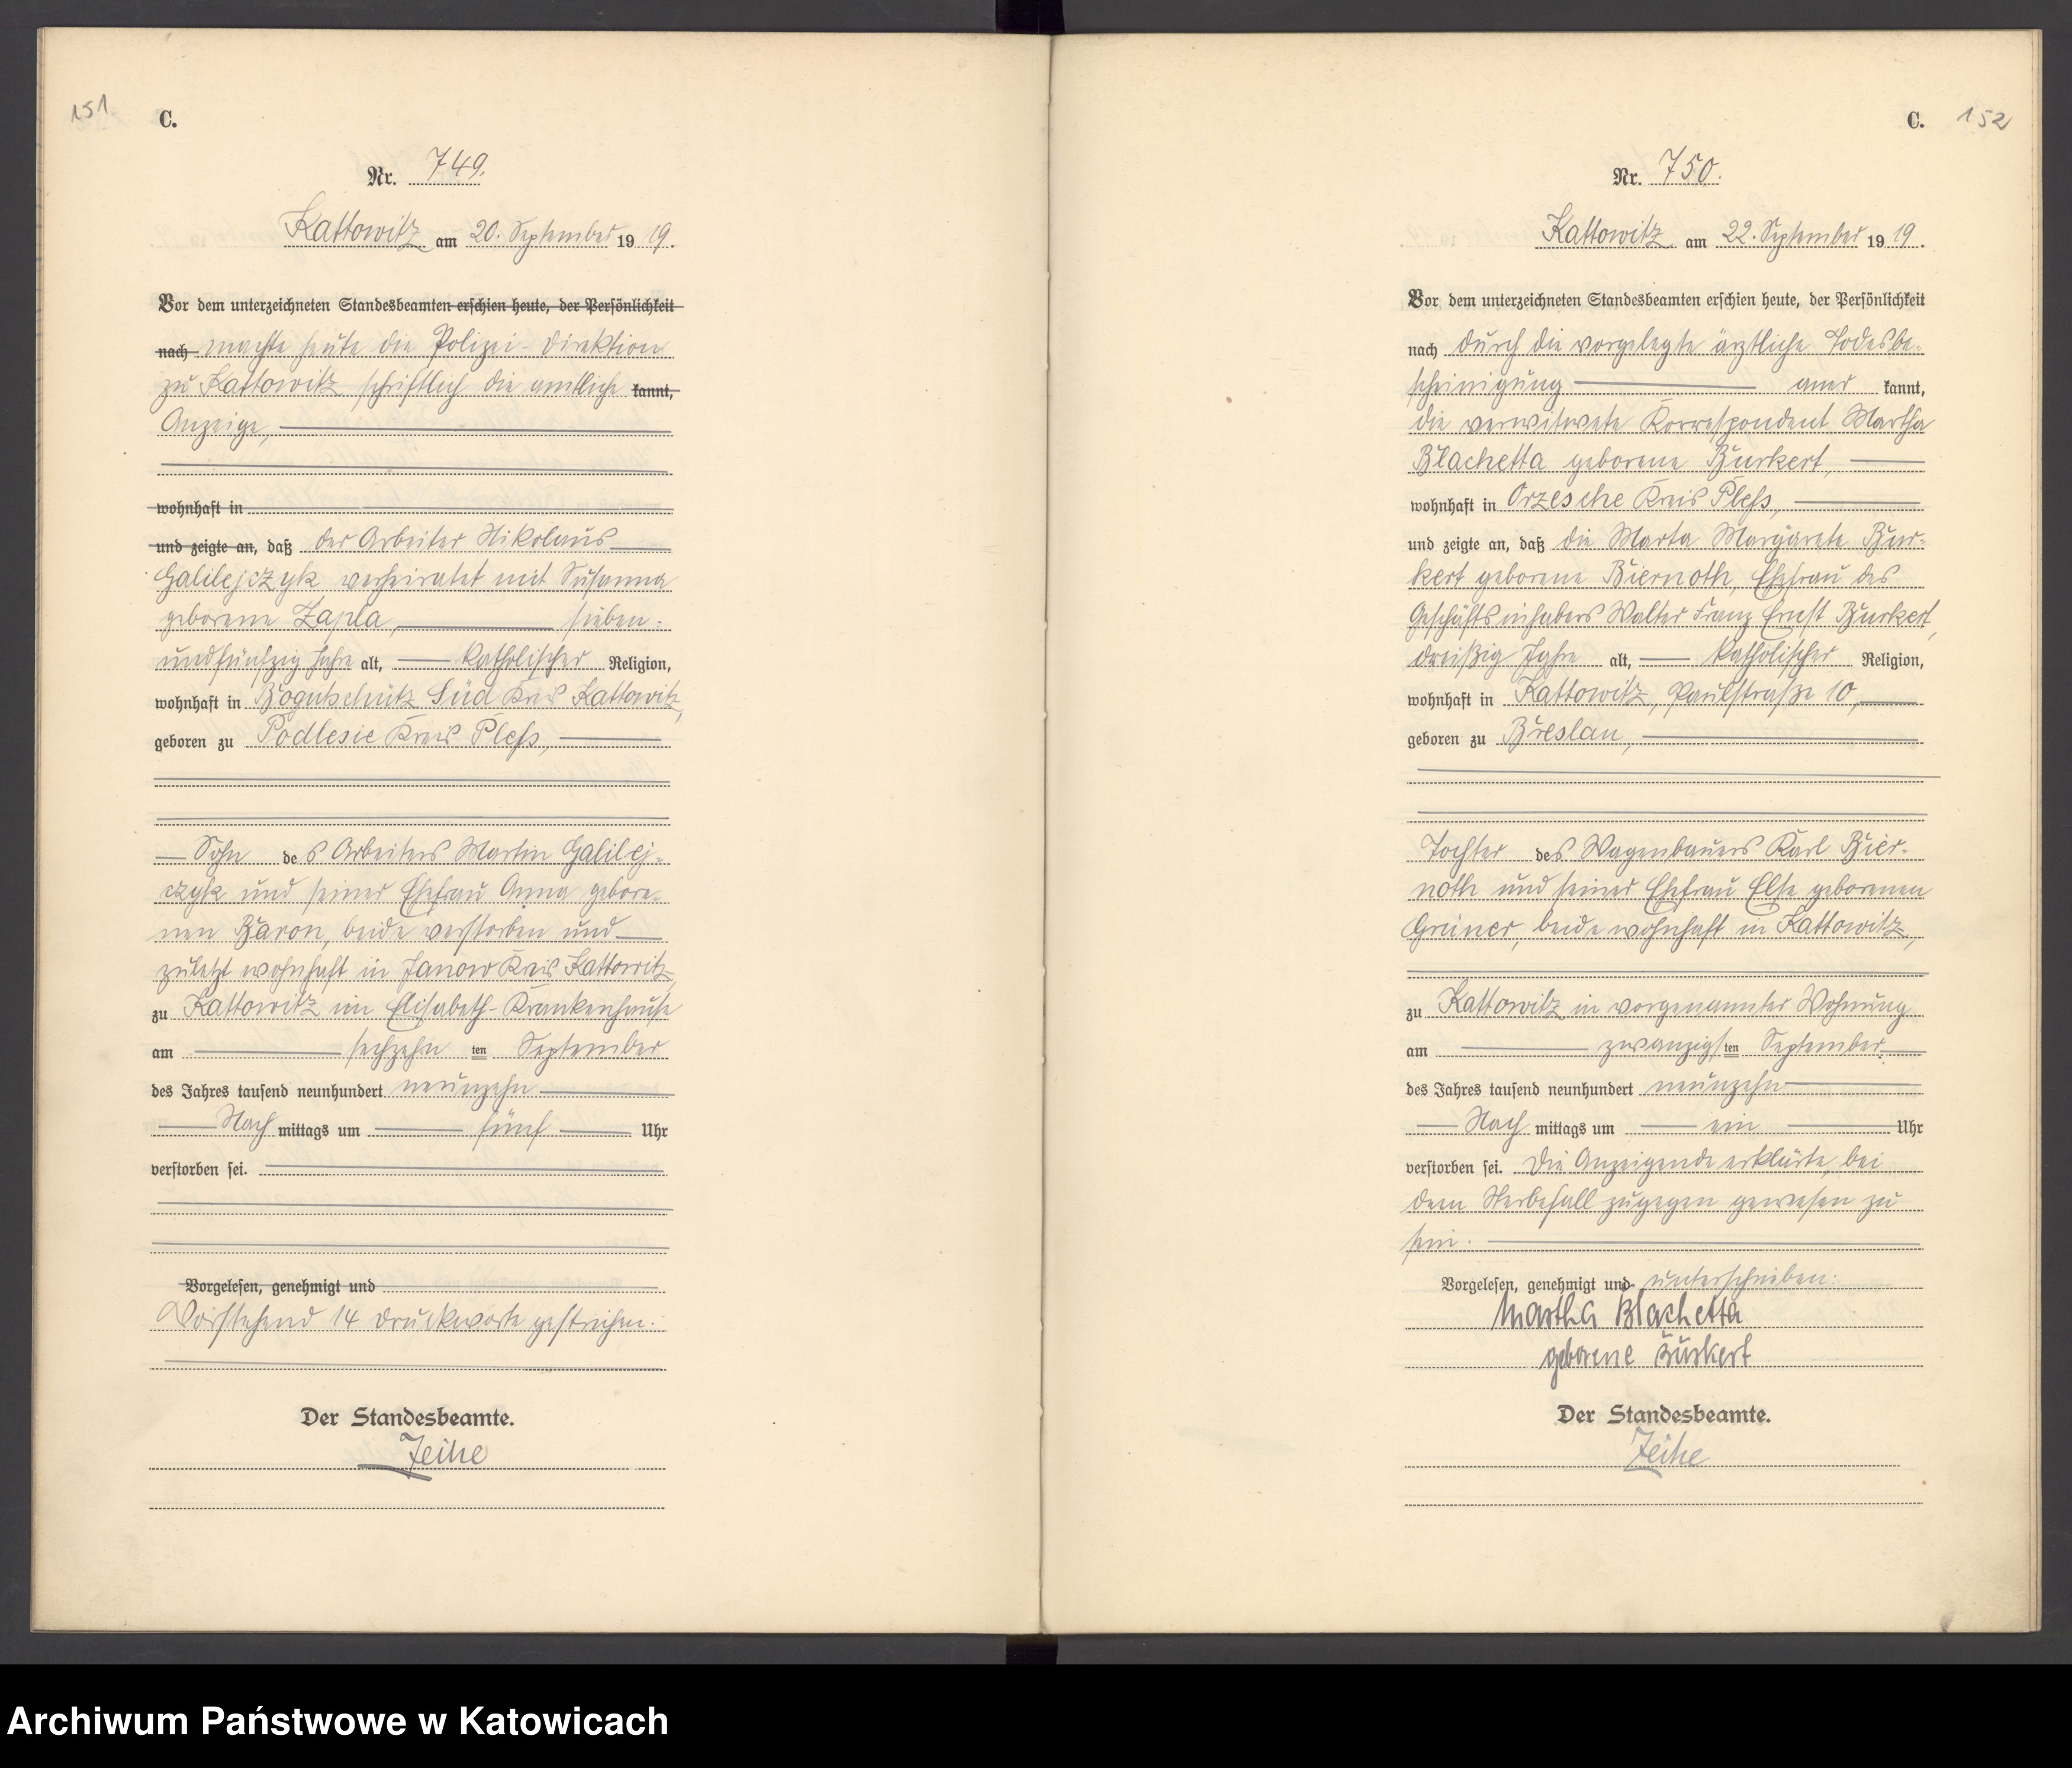 151
C.
Nr. 749.
Kattowitz am 20. September 1919.
Vor dem unterzeichneten Standesbeamten erschien heute, der Persönlichkeit
nach machte heute die Polizei-Direktion
zu Kattowitz schriftlich die amtliche kannt,
Anzeige,
wohnhaft in
und zeigte an, daß der Arbeiter Nikolaus
Galilejczyk verheiratet mit Susanna
geborene Zapla, sieben-
undfünfzig Jahre alt, katholischer Religion,
wohnhaft in Bogutschütz Süd Kreis Kattowitz,
geboren zu Podlesie Kreis Pleß,
Sohn des Arbeiters Martin Galilej-
czyk und seiner Ehefrau Anna gebore-
nen Baron, beide verstorben und
zuletzt wohnhaft in Janow Kreis Kattowitz,
zu Kattowitz im Elisabeth-Krankenhause
am sechzehn ten September
des Jahres tausend neunhundert neunzehn
Nach mittags um fünf Uhr
verstorben sei.
Vorgelesen, genehmigt und
Vorstehend 14 Druckworte gestrichen.
Der Standesbeamte.
C. 152
Nr. 750.
Kattowitz am 22. September 1919.
Vor dem unterzeichneten Standesbeamten erschien heute, der Persönlichkeit
nach durch die vorgelegte ärztliche Todesbe-
scheinigung aner kannt,
die verwitwete Korrespondent Martha
Blachetta geborene Burkert,
wohnhaft in Orzesche Kreis Pleß,
und zeigte an, daß die Marta Margarete Bur-
kert geborene Biernoth, Ehefrau des
Geschäftsinhabers Walter Franz Ernst Burkert,
dreißig Jahre alt, katholischer Religion,
wohnhaft in Kattowitz, Paulstraße 10,
geboren zu Breslau,
Tochter des Wagenbauers Karl Bier-
noth und seiner Ehefrau Else geborenen
Grüner, beide wohnhaft in Kattowitz,
zu Kattowitz in vorgenannter Wohnung
am zwanzigsten September
des Jahres tausend neunhundert neunzehn
Nach mittags um ein Uhr
verstorben sei. Die Anzeigende erklärte, bei
dem Sterbefall zugegen gewesen zu
sein.
Vorgelesen, genehmigt und unterschrieben:
Martha Blachetta
geborene Burkert
Der Standesbeamte.
Archiwum Państwowe w Katowicach